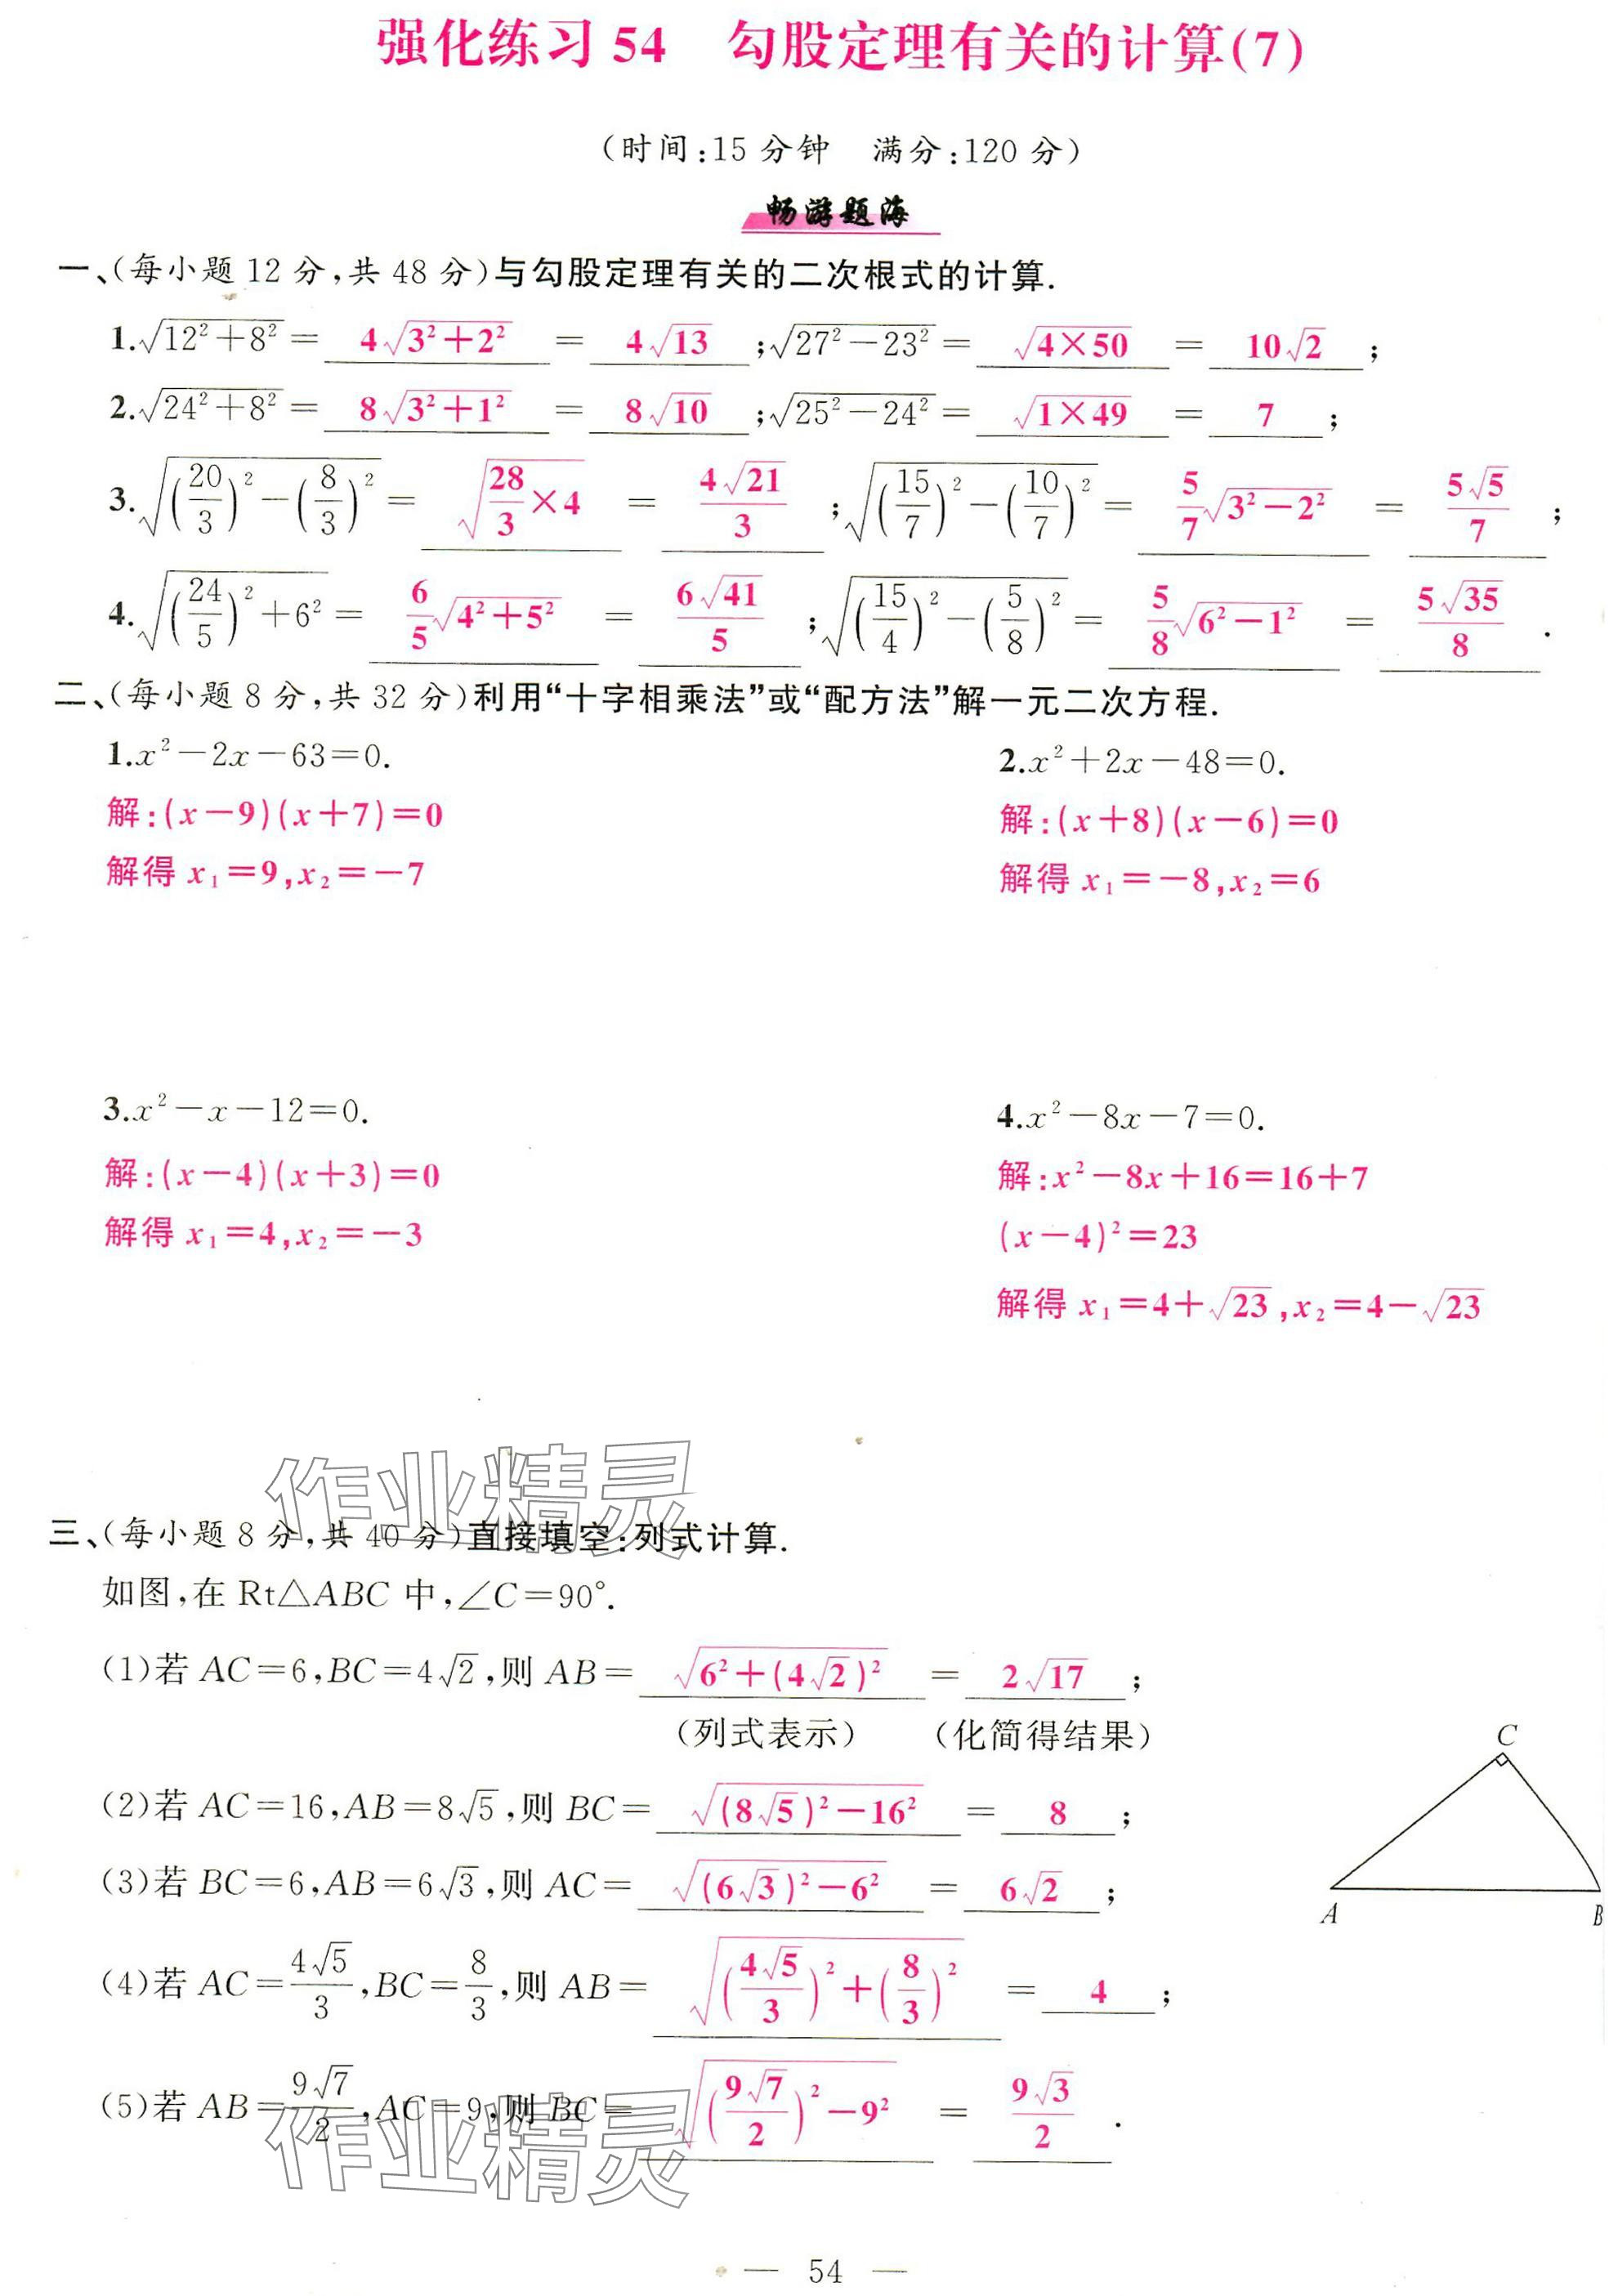 强化练习 54　勾股定理有关的计算(7)
(时间:15 分钟　满分:120 分)
畅游题海
一、(每小题 12 分,共 48 分)与勾股定理有关的二次根式的计算.
1.√(12²+8²)= 4√(3²+2²) = 4√13 ;√(27²-23²)= √(4×50) = 10√2 ;
2.√(24²+8²)= 8√(3²+1²) = 8√10 ;√(25²-24²)= √(1×49) = 7 ;
3.√((20/3)²-(8/3)²)= √(28/3×4) = 4√21/3 ;√((15/7)²-(10/7)²)= 5/7√(3²-2²) = 5√5/7 ;
4.√((24/5)²+6²)= 6/5√(4²+5²) = 6√41/5 ;√((15/4)²-(5/8)²)= 5/8√(6²-1²) = 5√35/8 .
二、(每小题 8 分,共 32 分)利用“十字相乘法”或“配方法”解一元二次方程.
1.x²-2x-63=0.　2.x²+2x-48=0.
解:(x-9)(x+7)=0　解:(x+8)(x-6)=0
解得 x₁=9,x₂=-7　解得 x₁=-8,x₂=6
3.x²-x-12=0.　4.x²-8x-7=0.
解:(x-4)(x+3)=0　解:x²-8x+16=16+7
解得 x₁=4,x₂=-3　(x-4)²=23
解得 x₁=4+√23,x₂=4-√23
作业精灵
三、(每小题 8 分,共 40 分)直接填空:列式计算.
如图,在 Rt△ABC 中,∠C=90°.
(1)若 AC=6,BC=4√2,则 AB= √(6²+(4√2)²) = 2√17 ;
(列式表示)　(化简得结果)
C
(2)若 AC=16,AB=8√5,则 BC= √((8√5)²-16²) = 8 ;
(3)若 BC=6,AB=6√3,则 AC= √((6√3)²-6²) = 6√2 ;
A　B
(4)若 AC=4√5/3,BC=8/3,则 AB= √((4√5/3)²+(8/3)²) = 4 ;
(5)若 AB=9√7/2,AC=9,则 BC= √((9√7/2)²-9²) = 9√3/2 .
作业精灵
— 54 —